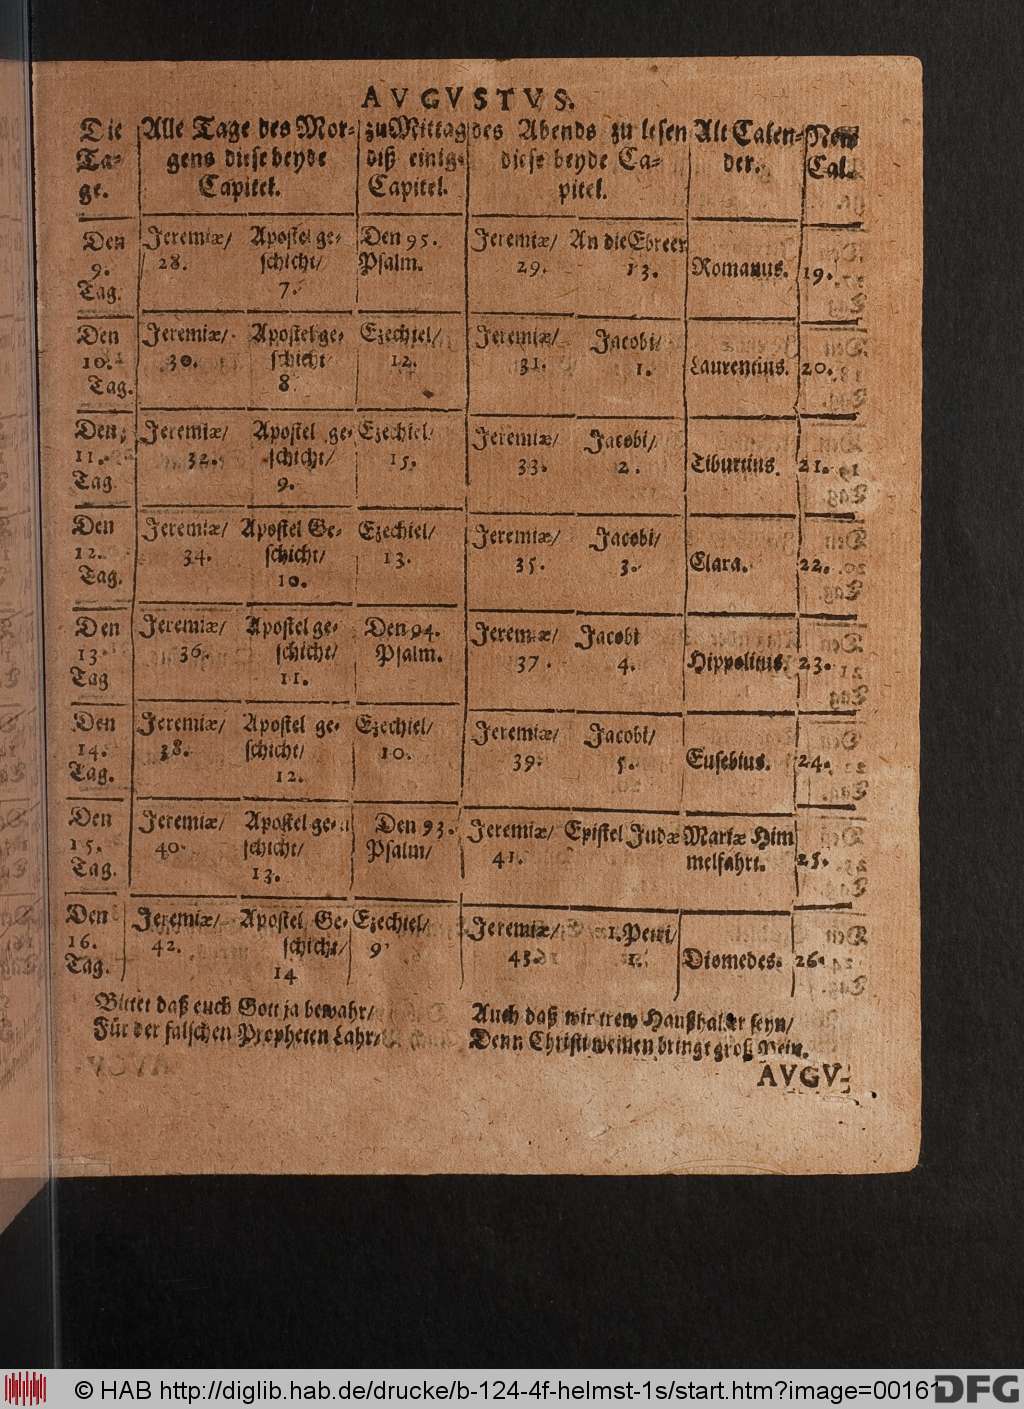 AVGVSTVS.
Die Alle Tage des Mor- zu Mittag des Abends zu lesen Alt Calen- New
Ta- gens diese beyde diß einig- diese beyde Ca- der. Cal.
ge. Capitel. Capitel. pitel.
Den Jeremiæ/ Apostel ge- Den 95. Jeremiæ/ An die Ebreer
9. 28. schicht/ Psalm. 29. 13. Romanus. 19.
Tag. 7.
Den Jeremiæ/ Apostel ge- Ezechiel/ Jeremiæ/ Jacobi/
10. 30. schicht 12. 31. 1. Laurentius. 20.
Tag. 8
Den Jeremiæ/ Apostel ge- Ezechiel/ Jeremiæ/ Jacobi/
11. 32. schicht/ 15. 33. 2. Tiburtius. 21.
Tag 9.
Den Jeremiæ/ Apostel Ge- Ezechiel/ Jeremiæ/ Jacobi/
12. 34. schicht/ 13. 35. 3. Clara. 22.
Tag. 10.
Den Jeremiæ/ Apostel ge- Den 94. Jeremiæ/ Jacobi
13. 36. schicht/ Psalm. 37. 4. Hippolitus. 23.
Tag 11.
Den Jeremiæ/ Apostel ge- Ezechiel/ Jeremiæ/ Jacobi/
14. 38. schicht/ 10. 39. 5. Eusebius. 24.
Tag. 12.
Den Jeremiæ/ Apostel ge- Den 93. Jeremiæ/ Epistel Judæ Mariæ Him
15. 40. schicht/ Psalm/ 41. melfahrt. 25.
Tag. 13.
Den Jeremiæ/ Apostel Ge- Ezechiel/ Jeremiæ/ 1. Petri/
16. 42. schicht/ 9. 43. 1. Diomedes. 26.
Tag. 14
Bittet daß euch Gott ja bewahr/
Für der falschen Propheten Lahr/
Auch daß wir trew Haußhalter seyn/
Denn Christi weinen bringt groß Pein.
AVGV-
© HAB http://diglib.hab.de/drucke/b-124-4f-helmst-1s/start.htm?image=00161
DFG